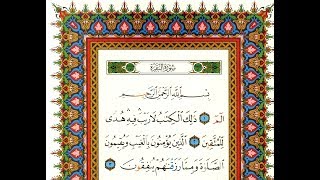 سورة البقرة
بِسْمِ اللَّهِ الرَّحْمَٰنِ الرَّحِيمِ
الٓمٓ ۝١ ذَٰلِكَ الْكِتَٰبُ لَا رَيْبَ ۛ فِيهِ ۛ هُدًى
لِّلْمُتَّقِينَ ۝٢ الَّذِينَ يُؤْمِنُونَ بِالْغَيْبِ وَيُقِيمُونَ
الصَّلَوٰةَ وَمِمَّا رَزَقْنَٰهُمْ يُنفِقُونَ